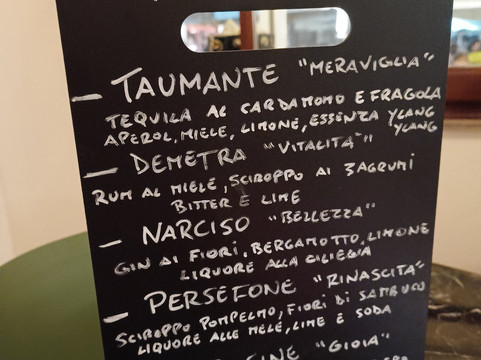 – TAUMANTE "MERAVIGLIA"
TEQUILA AL CARDAMOMO E FRAGOLA
APEROL, MIELE, LIMONE, ESSENZA YLANG
YLANG
– DEMETRA "VITALITÀ"
RUM AL MIELE, SCIROPPO AI 3 AGRUMI
BITTER E LIME
– NARCISO "BELLEZZA"
GIN AI FIORI, BERGAMOTTO, LIMONE
LIQUORE ALLA CILIEGIA
– PERSEFONE "RINASCITA"
SCIROPPO POMPELMO, FIORI DI SAMBUCO
LIQUORE ALLE MELE, LIME E SODA
"GIOIA"